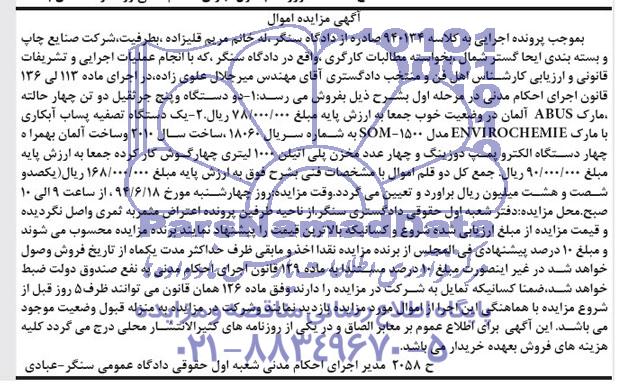 آگهی مزایده اموال
بموجب پرونده اجرایی به کلاسه ۹۴۰۱۳۴ صادره از دادگاه سنگر ،له خانم مریم قلیزاده ،بطرفیت،شرکت صنایع چاپ
و بسته بندی ایحا گستر شمال ،بخواسته مطالبات کارگری ،واقع در دادگاه سنگر ،که با انجام عملیات اجرایی و تشریفات
قانونی و ارزیابی کارشناس اهل فن و منتخب دادگستری آقای مهندس میرجلال علوی زاده،در اجرای ماده ۱۱۳ الی ۱۳۶
قانون اجرای احکام مدنی در مرحله اول بشرح ذیل بفروش می رسد:۱-دو دستگاه وینچ جرثقیل دو تن چهار حالته
،مارک ABUS آلمان در وضعیت خوب جمعا به ارزش پایه مبلغ ۷۸/۰۰۰/۰۰۰ ریال.۲-یک دستگاه تصفیه پساب آبکاری
با مارک ENVIROCHEMIE مدل SOM-۱۵۰۰ به شماره سریال ۱۸۰۶۰ ،ساخت سال ۲۰۱۰ وساخت آلمان بهمرا ه
چهار دستگاه الکترو پمپ دوزینگ و چهار عدد مخزن پلی اتیلن ۱۰۰۰ لیتری چهارگوش کار کرده جمعا به ارزش پایه
مبلغ ۹۰/۰۰۰/۰۰۰ ریال. جمع کل دو قلم اموال با مشخصات فنی بشرح فوق به ارزش پایه مبلغ ۱۶۸/۰۰۰/۰۰۰ ریال(یکصدو
شصت و هشت میلیون ریال برآورد و تعیین می گردد.وقت مزایده:روز چهارشنبه مورخ ۹۴/۶/۱۸ ، از ساعت ۹ الی ۱۰
صبح.محل مزایده:دفتر شعبه اول حقوقی دادگستری سنگر.از ناحیه طرفین پرونده اعتراض مثمر به ثمری واصل نگردیده
و قیمت مزایده از مبلغ ارزیابی شده شروع و کسانیکه بالاترین قیمت را پیشنهاد نمایند،برنده مزایده محسوب می شوند
و مبلغ ۱۰ درصد پیشنهادی فی المجلس از برنده مزایده نقدا اخذ و مابقی ظرف حداکثر مدت یکماه از تاریخ فروش وصول
خواهد شد.در غیر اینصورت مبلغ ۱۰ درصد مستندا به ماده ۱۲۹ قانون اجرای احکام مدنی به نفع صندوق دولت ضبط
خواهد شد،ضمنا کسانیکه تمایل به شرکت در مزایده را دارند،وفق ماده ۱۲۶ همان قانون می توانند ظرف ۵ روز قبل از
شروع مزایده با هماهنگی این اجرا از اموال مورد مزایده بازدید نمایند وشرکت در مزایده به منزله قبول وضعیت موجود
می باشد. این آگهی برای اطلاع عموم بر معابر الصاق و در یکی از روزنامه های کثیرالانتشار محلی درج می گردد کلیه
هزینه های فروش بعهده خریدار می باشد.
ح ۲۰۵۸ مدیر اجرای احکام مدنی شعبه اول حقوقی دادگاه عمومی سنگر-عبادی
۰۲۱-۸۸۳۴۹۶۷۰-۵